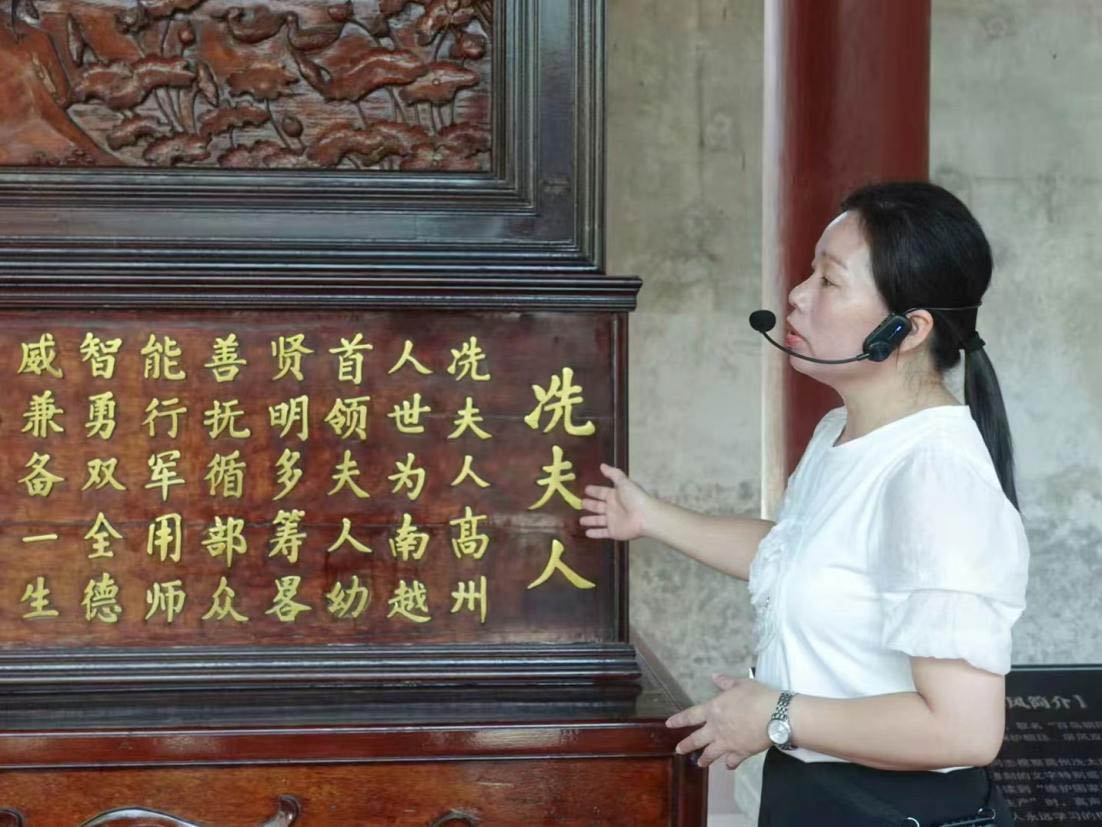 冼夫人
冼夫人髙州
人世为南越
首领夫人幼
贤明多筹畧
善抚循部众
能行军用师
智勇双全德
威兼备一生
风简介】